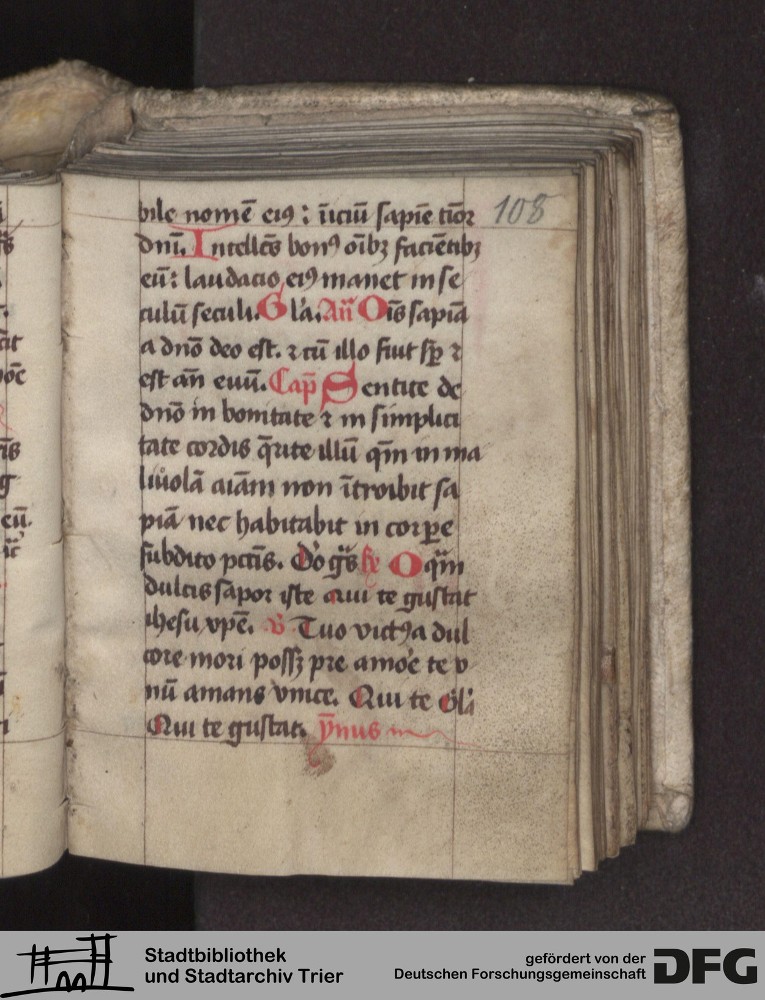 bile nomē eiꝯ : īiciū sapiē tīor 108
dnī. Intellcs̄ bonꝰ oībꝫ faciētibꝫ
eū: laudacio eiꝯ manet in se
culū seculi. Gla. Añ Oīs sapiā
a dnō deo est. ⁊ cū illo fiut sꝑ ⁊
est añ euū. Cap̄ Sentite de
dnō in bonitate ⁊ in simplici
tate cordis q̄rite illū qm̄ in ma
liuolā aīam non ītroibit sa
piā nec habitabit in corꝑe
subdito pctīs. Dō gr̄s O qm̄
dulcis sapor iste Qui te gustat
ihesu xpē. V̄ Tuo victꝯa dul
core mori possꝫ pre amoē te v
nū amans vnice. Qui te Gla
Qui te gustat. ȳmus
Stadtbibliothek
und Stadtarchiv Trier
gefördert von der
Deutschen Forschungsgemeinschaft DFG